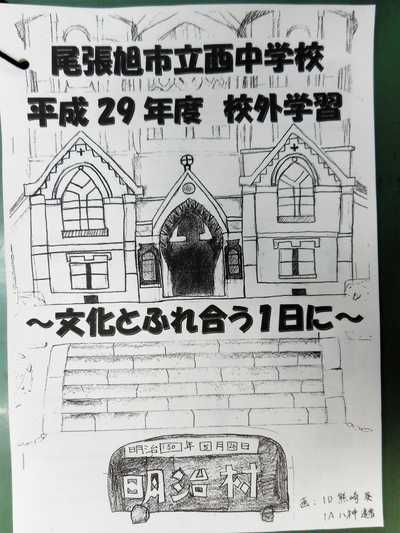 尾張旭市立西中学校
平成29年度 校外学習
～文化とふれ合う1日に～
明治150年5月26日
明治村
画：1D 熊崎
1A 八神